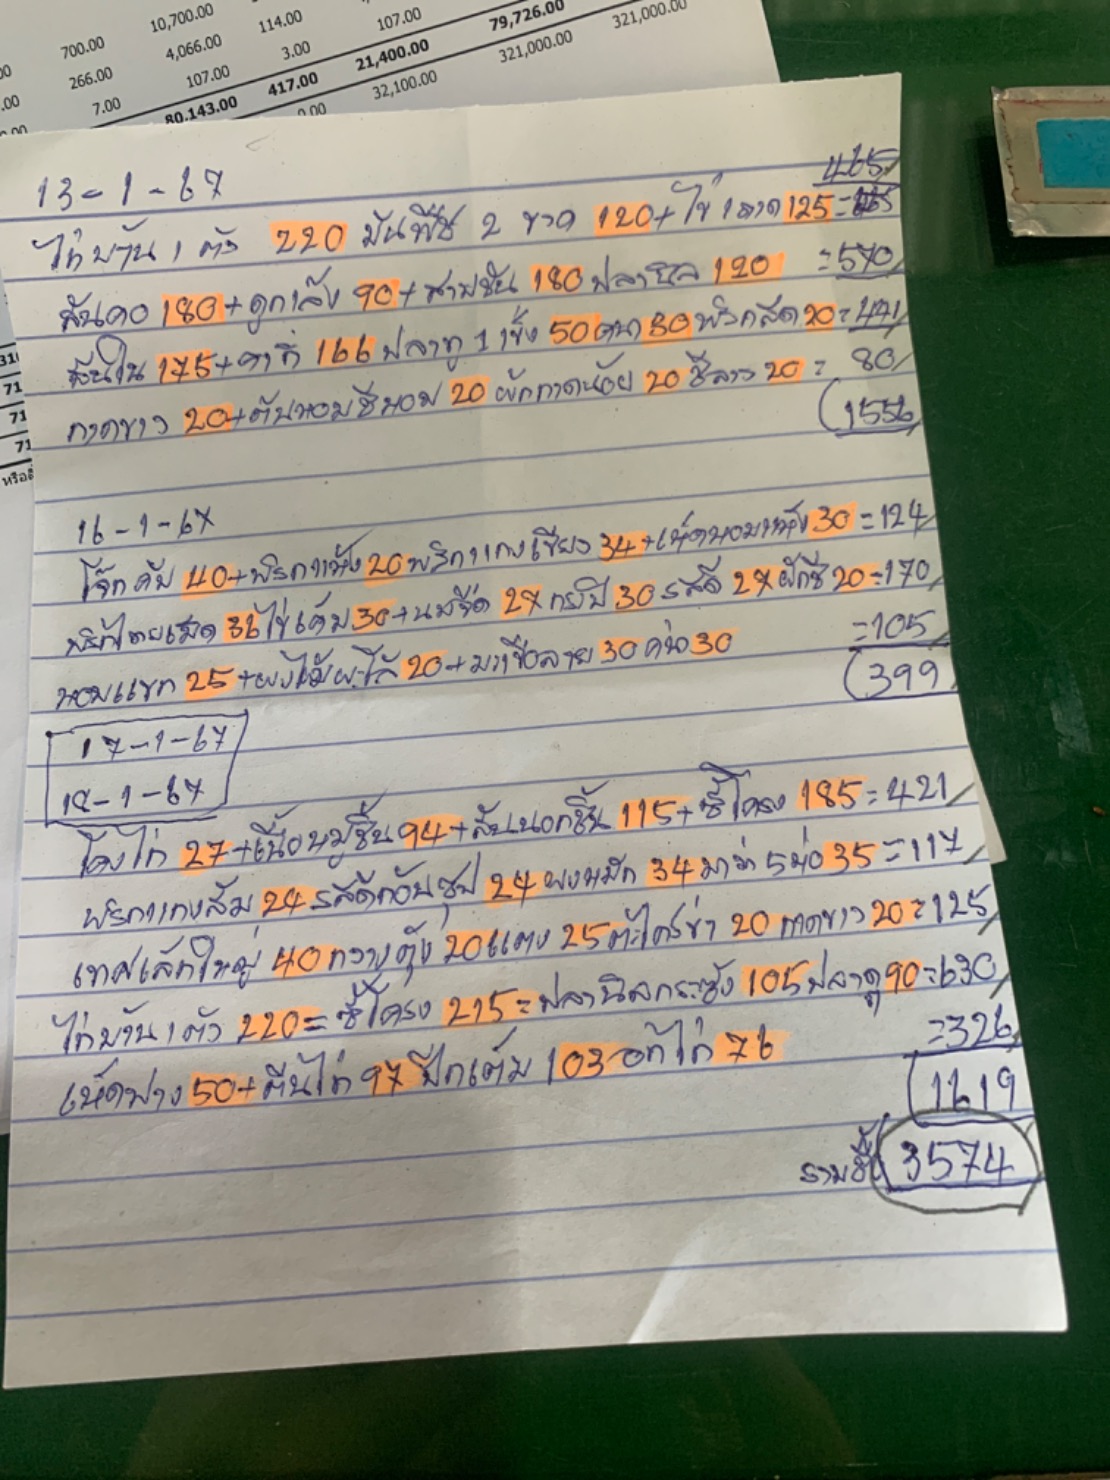 700.00 10,700.00 114.00
.00 266.00 4,066.00 3.00 107.00 79,726.00 321,000.00
7.00 107.00 417.00 21,400.00 321,000.00
80,143.00 32,100.00
71
71
71
13-1-67
465
ไก่บ้าน 1 ตัว 220 มันพืช 2 ขวด 120+ไข่ 1 ถาด 125=
สันคอ 180+ดูกเล้ง 90+สามชั้น 180 ปลานิล 120 =570
สันใน 175+กาก 166 ปลาทู 1 เข่ง 50 คนา 30 พริกสด 20=441
กาดขาว 20+ต้นหอมชีหอม 20 ผักกาดน้อย 20 ชีลาว 20= 80
1556
16-1-67
โจ๊กคัพ 40+พริกแห้ง 20 พริกแกงเขียว 34+เห็ดหอมแห้ง 30=124
พริกไทยเม็ด 36 ไข่เค็ม 30+นมจืด 27 กะปิ 30 รสดี 27 ผักชี 20=170
หอมแขก 25+ 20+มะเขือลาย 30 คน่ 30 =105
399
17-1-67
18-1-67
โครงไก่ 27+เนื้อหมูชิ้น 94+สันนอกชิ้น 115+ซี่โครง 185=421
พริกแกงส้ม 24 รสดีก้อนซุป 24 ผงหมัก 34 มาม่า 5 ห่อ 35=117
เทศเล็กใหญ่ 40 กวางตุ้ง 20 แตง 25 ตะไคร้ข่า 20 กาดขาว 20=125
ไก่บ้าน 1 ตัว 220=ซี่โครง 215=ปลานิลกระชัง 105 ปลาดุ 90=630
เห็ดฟาง 50+ตีนไก่ 97 ปีกเต็ม 103 อกไก่ 76 =326
1619
รวมซื้อ 3574